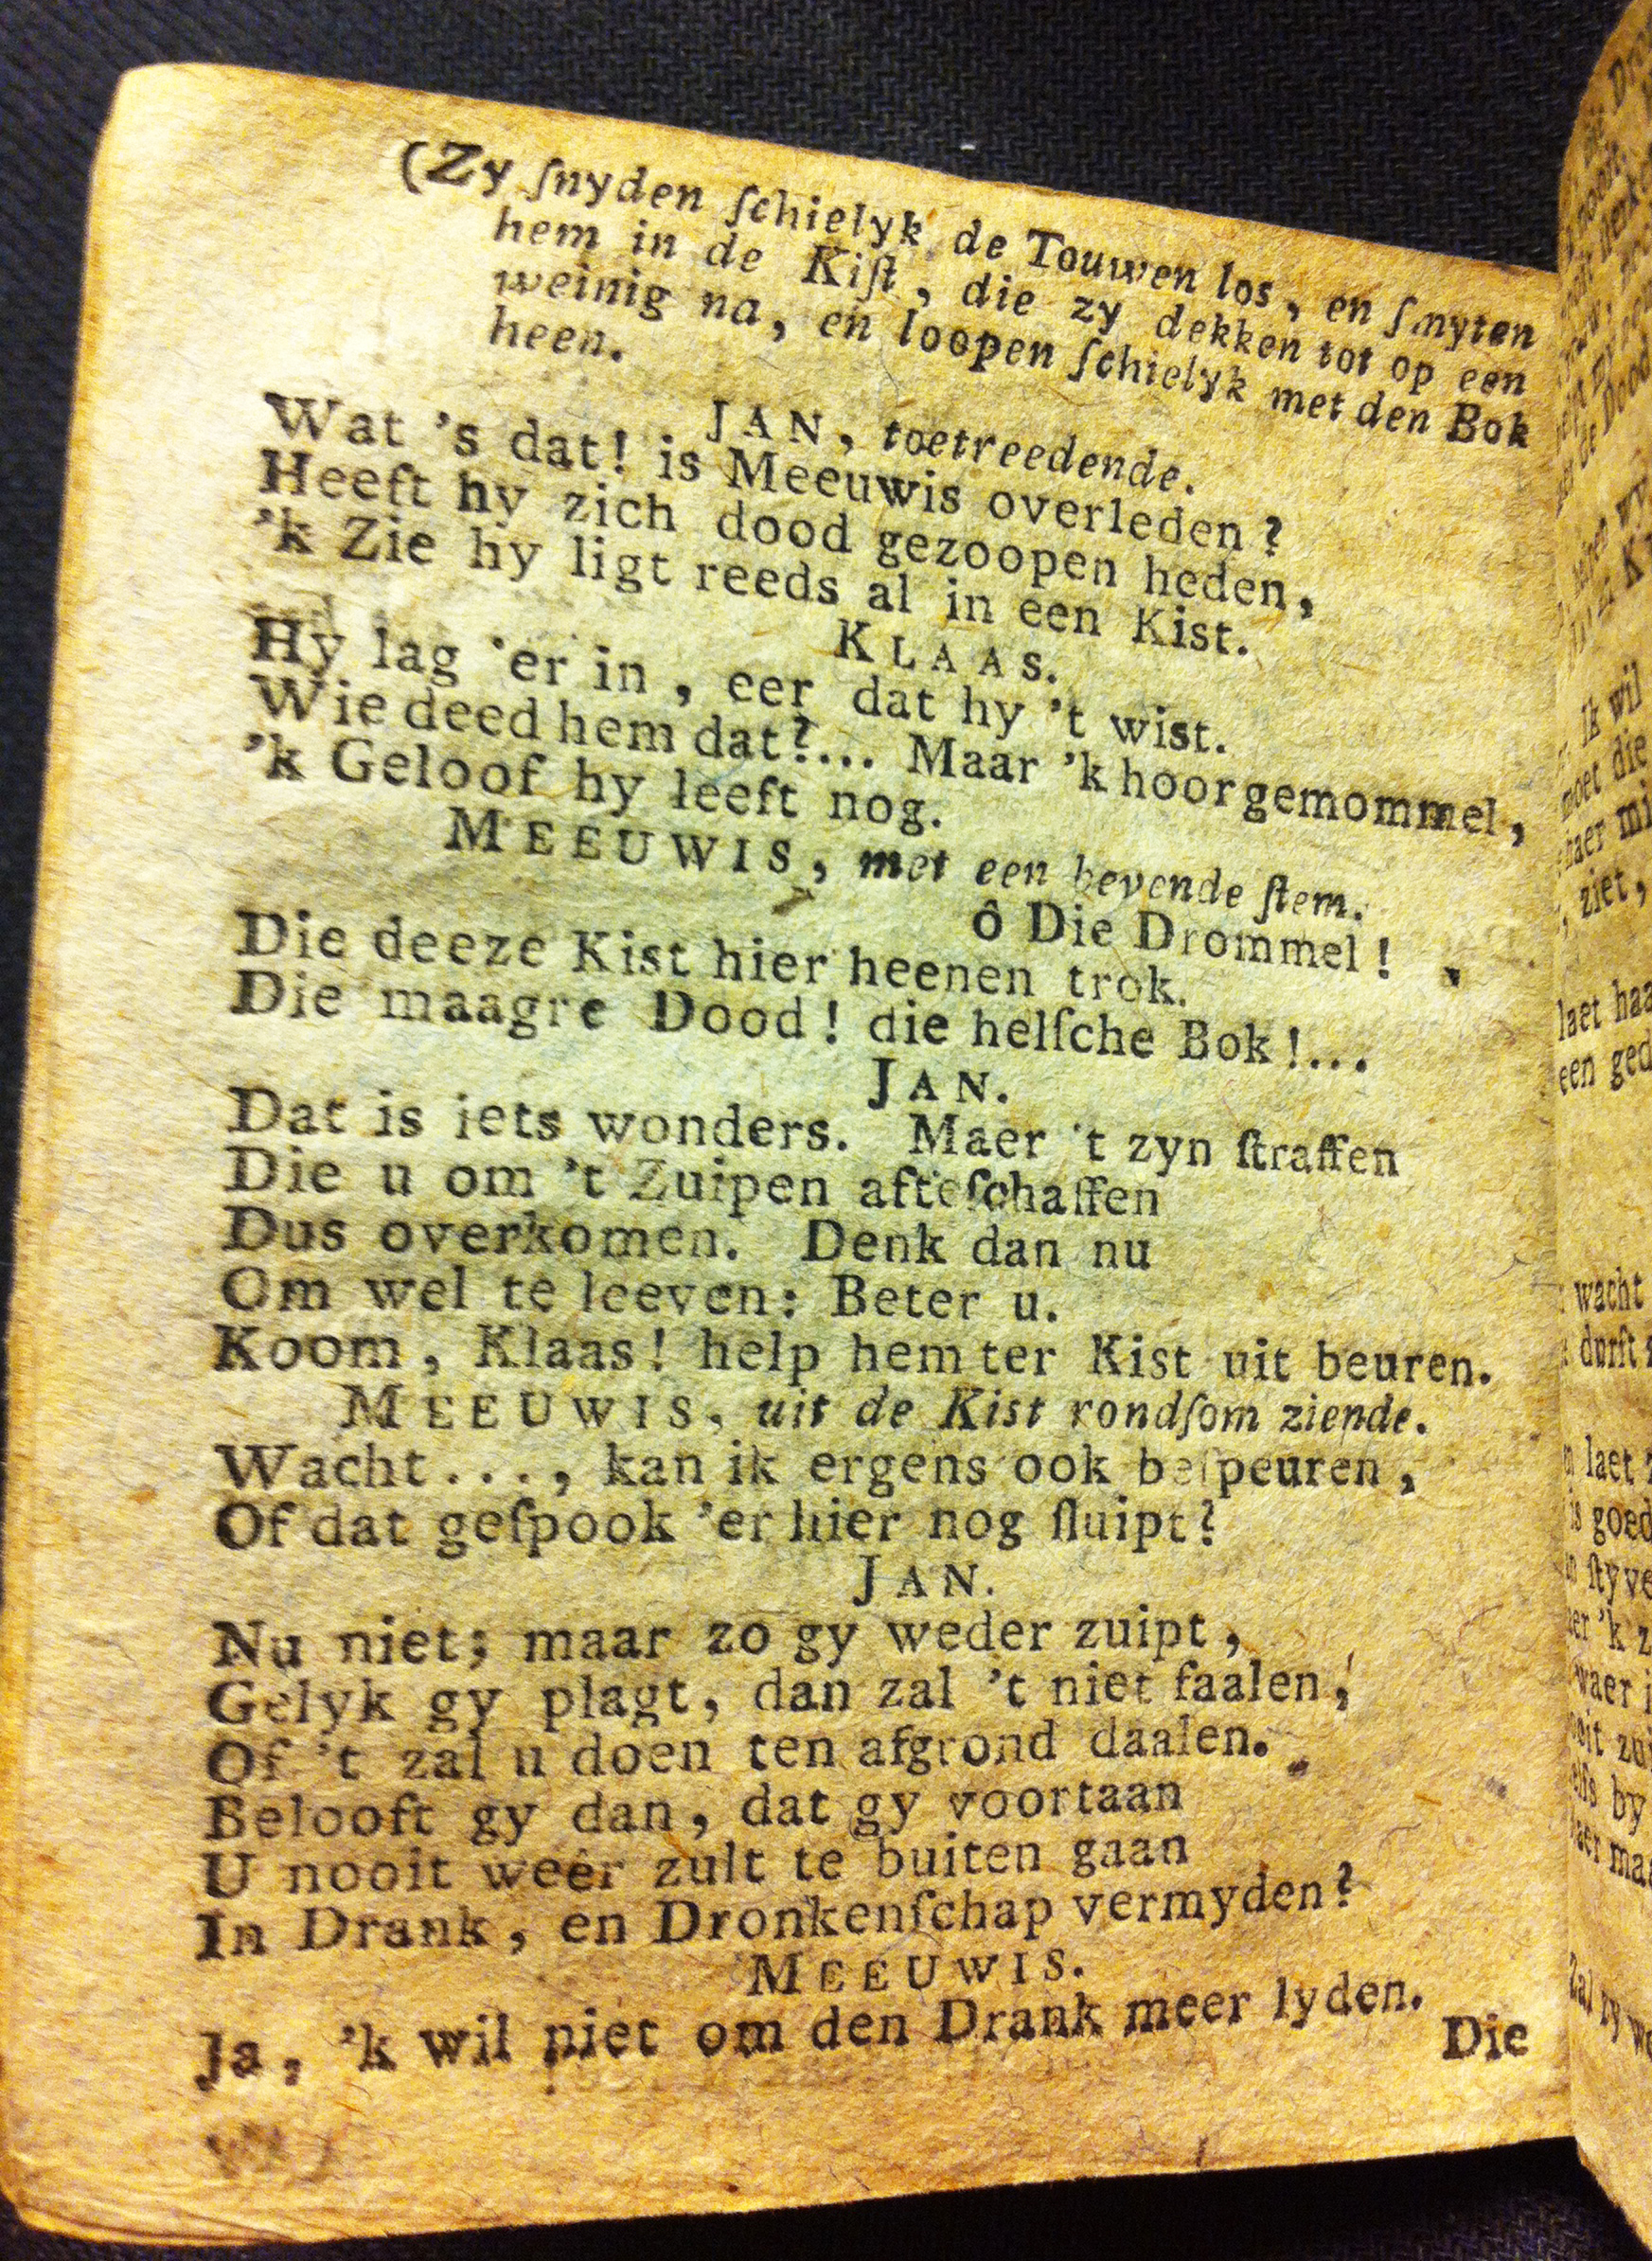 (Zy ſnyden ſchielyk de Touwen los, en ſmyten
hem in de Kiſt, die zy dekken tot op een
weinig na, en loopen ſchielyk met den Bok
heen.
JAN, toetreedende.
Wat 's dat! is Meeuwis overleden?
Heeft hy zich dood gezoopen heden,
'k Zie hy ligt reeds al in een Kist.
KLAAS.
Hy lag 'er in, eer dat hy 't wist.
Wie deed hem dat?... Maar 'k hoor gemommel,
'k Geloof hy leeft nog.
MEEUWIS, met een bevende ſtem.
ô Die Drommel!
Die deeze Kist hier heenen trok.
Die maagre Dood! die helſche Bok!...
JAN.
Dat is iets wonders. Maer 't zyn ſtraffen
Die u om 't Zuipen afteſchaffen
Dus overkomen. Denk dan nu
Om wel te leeven: Beter u.
Koom, Klaas! help hem ter Kist uit beuren.
MEEUWIS, uit de Kist rondſom ziende.
Wacht...., kan ik ergens ook beſpeuren,
Of dat geſpook 'er hier nog ſluipt?
JAN.
Nu niet; maar zo gy weder zuipt,
Gelyk gy plagt, dan zal 't niet faalen,
Of 't zal u doen ten afgrond daalen.
Belooft gy dan, dat gy voortaan
U nooit weêr zult te buiten gaan
In Drank, en Dronkenſchap vermyden?
MEEUWIS.
Ja, 'k wil niet om den Drank meer lyden.
Die
ik wil
moet die
ziet,
laet
een
wacht
durft
laet
goed
by